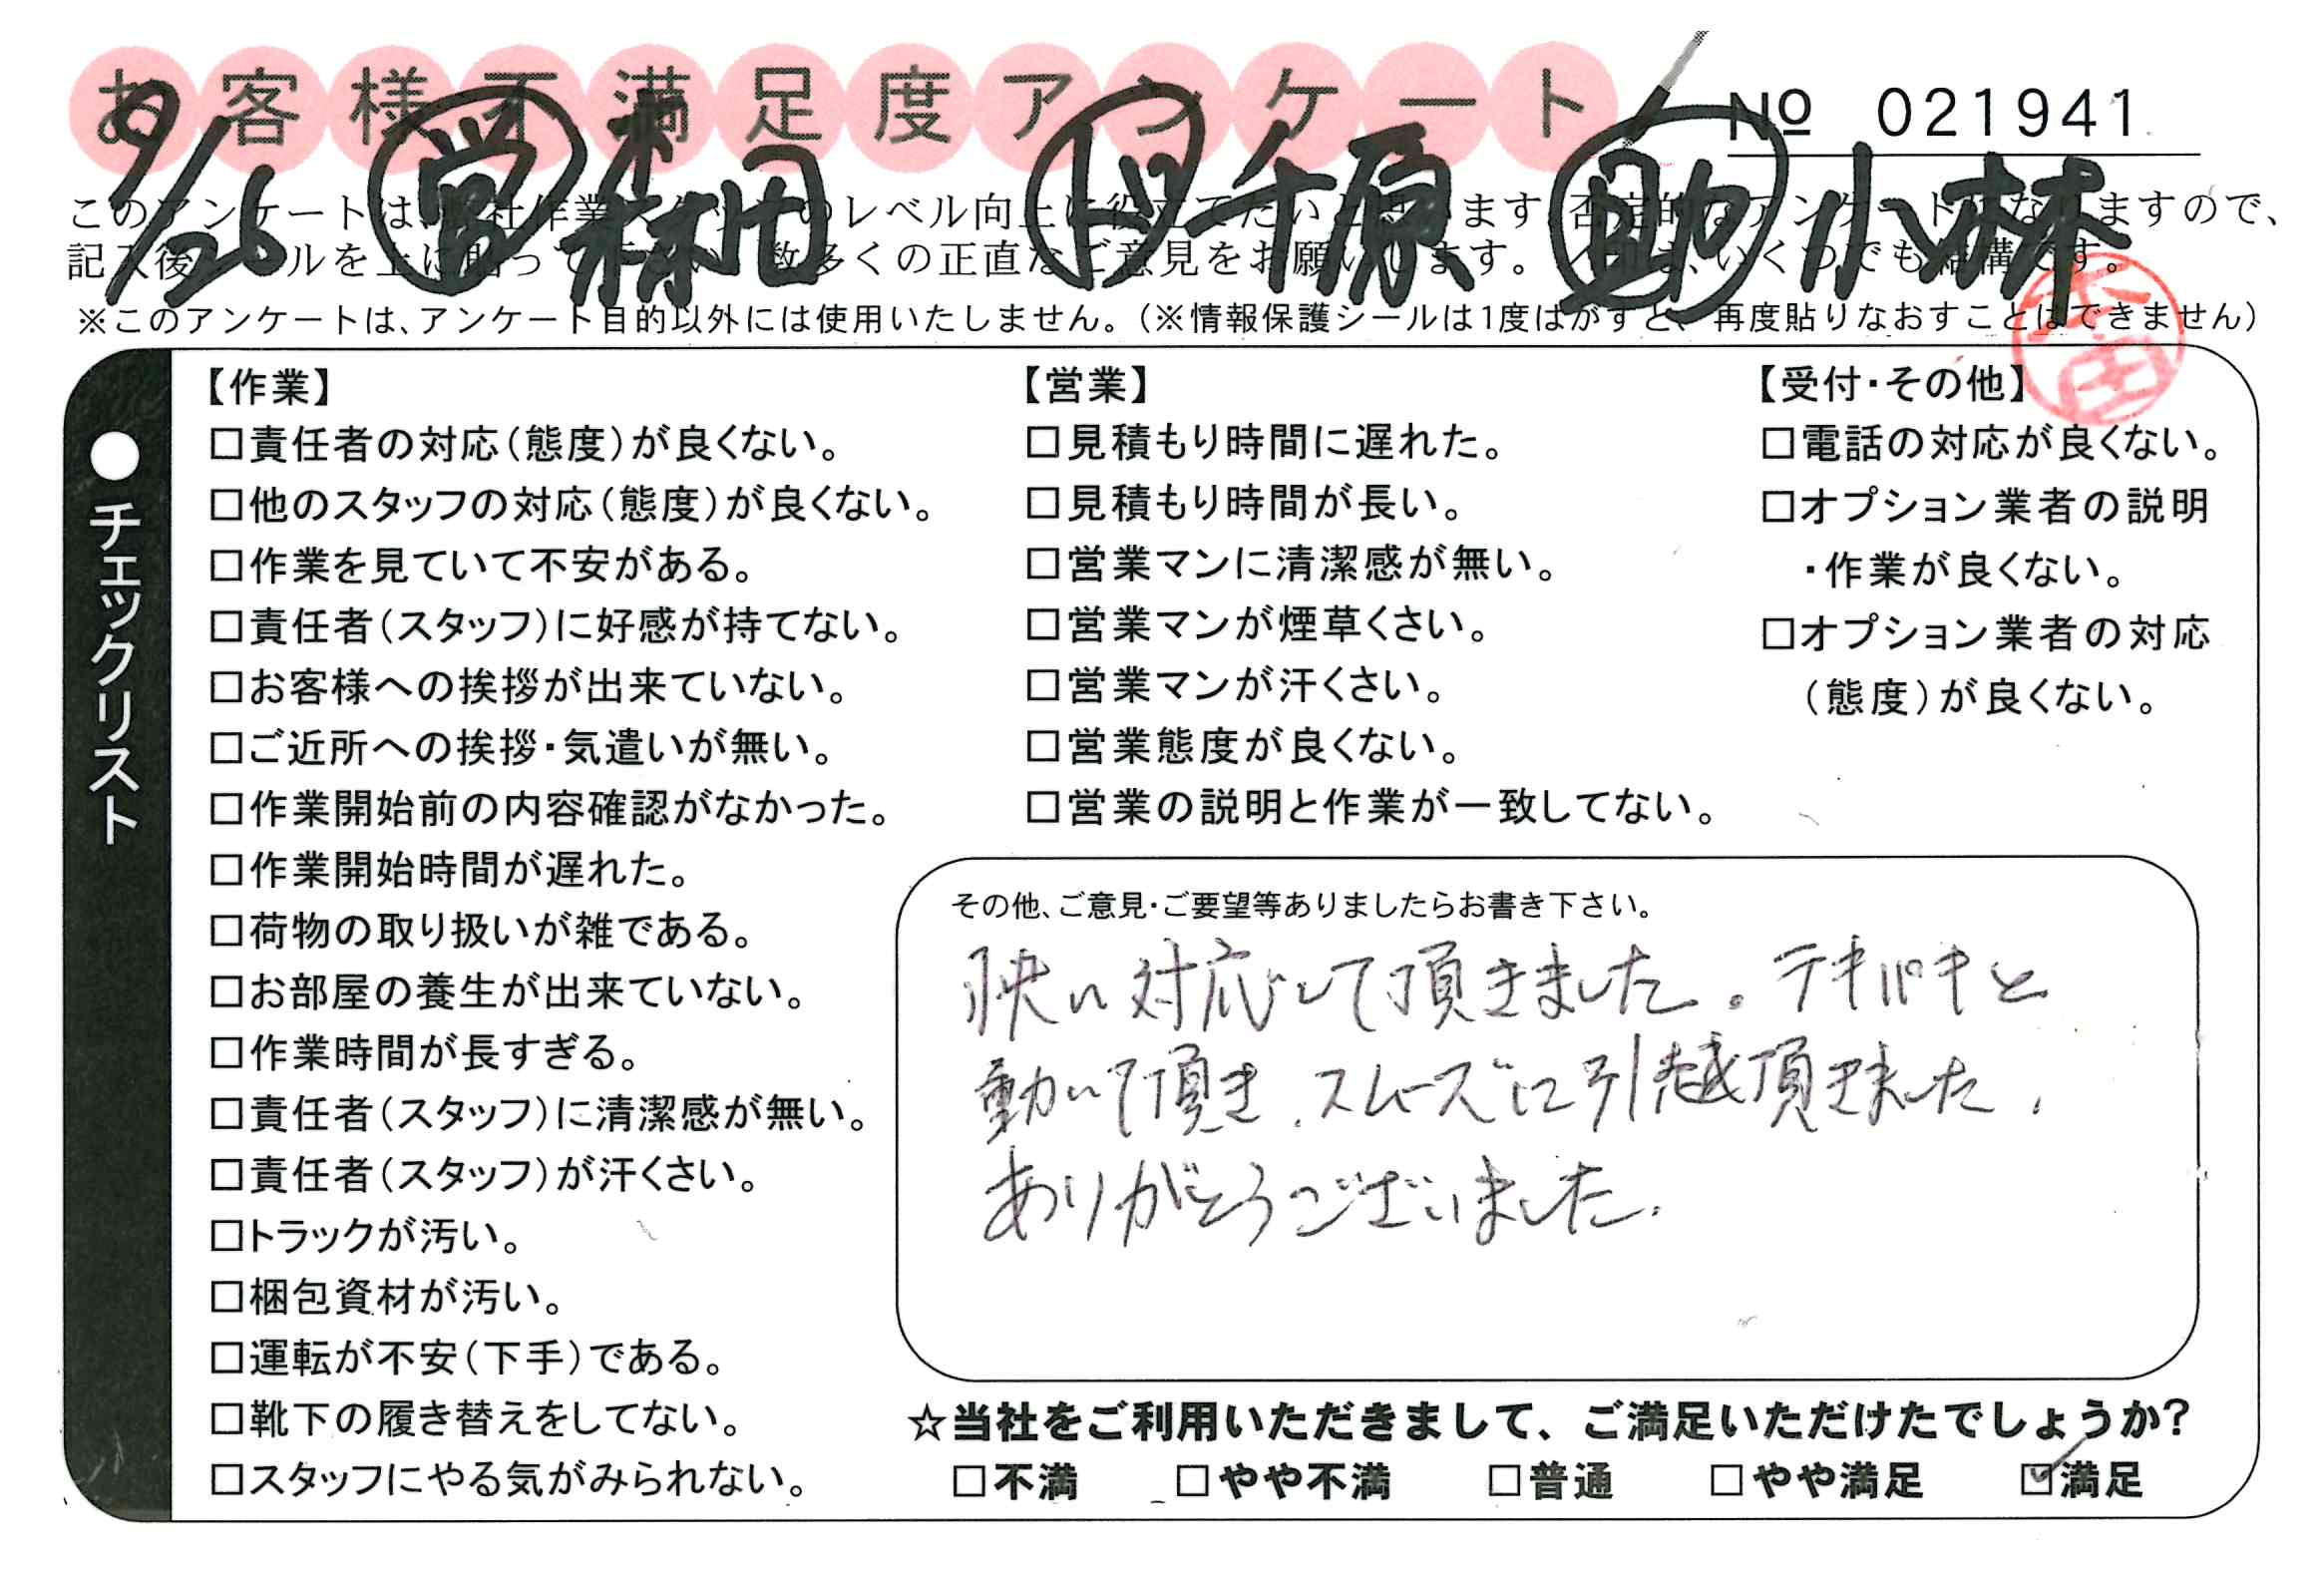 お客様不満足度アンケート
№ 021941
9/26 営 森田 ト 千原 助 小林
このアンケートは、社作業スタッフのレベル向上に役立てたいと思います。否定的なアンケートになりますので、
記入後シールを上に貼って下さい。数多くの正直なご意見をお願いします。いくつでも結構です。
※このアンケートは、アンケート目的以外には使用いたしません。(※情報保護シールは1度はがすと、再度貼りなおすことはできません)
●チェックリスト
【作業】
□責任者の対応(態度)が良くない。
□他のスタッフの対応(態度)が良くない。
□作業を見ていて不安がある。
□責任者(スタッフ)に好感が持てない。
□お客様への挨拶が出来ていない。
□ご近所への挨拶・気遣いが無い。
□作業開始前の内容確認がなかった。
□作業開始時間が遅れた。
□荷物の取り扱いが雑である。
□お部屋の養生が出来ていない。
□作業時間が長すぎる。
□責任者(スタッフ)に清潔感が無い。
□責任者(スタッフ)が汗くさい。
□トラックが汚い。
□梱包資材が汚い。
□運転が不安(下手)である。
□靴下の履き替えをしてない。
□スタッフにやる気がみられない。
【営業】
□見積もり時間に遅れた。
□見積もり時間が長い。
□営業マンに清潔感が無い。
□営業マンが煙草くさい。
□営業マンが汗くさい。
□営業態度が良くない。
□営業の説明と作業が一致してない。
【受付・その他】
□電話の対応が良くない。
□オプション業者の説明
・作業が良くない。
□オプション業者の対応
(態度)が良くない。
その他、ご意見・ご要望等ありましたらお書き下さい。
快い対応して頂きました。テキパキと
動いて頂き、スムーズに引越頂きました。
ありがとうございました。
☆当社をご利用いただきまして、ご満足いただけたでしょうか?
□不満 □やや不満 □普通 □やや満足 ☑満足